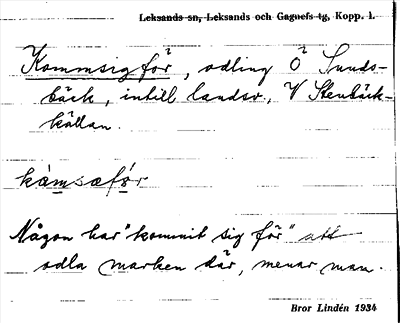 Leksands sn, Leksands och Gagnefs tg, Kopp. l.
Kommsigför, odling Ö Sunds-
bäck, intill landsv., V Stenbäck-
källan.
kàmsəfór
Någon har "kommit sig för" att
odla marken där, menar man.
Bror Lindén 1934